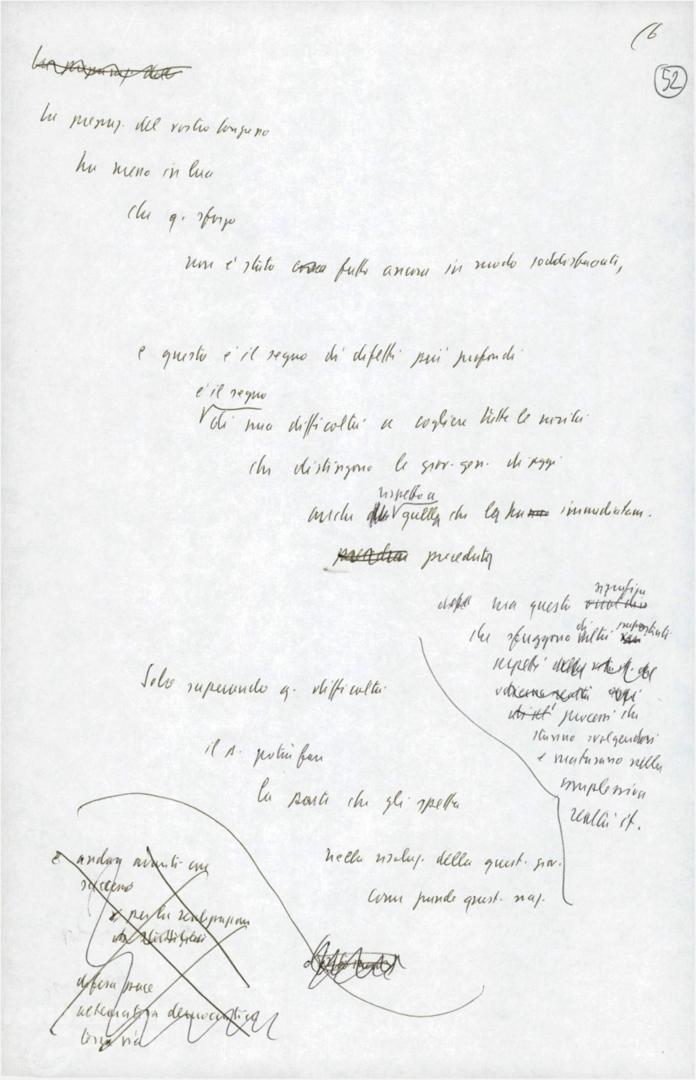 16
52
La preparaz. del
La preparaz. del vostro congresso
ha messo in luce
che q. sforzo
non è stato fatto ancora in modo soddisfacente,
e questo è il segno di difetti più profondi
è il segno
di una difficoltà a cogliere tutte le novità
che distinguono le giov. gen. di oggi
rispetto a
anche quella che la ha immediatam.
preceduta
ma questo significa
che sfuggono
di importanti
aspetti
processi che
stanno svolgendosi
e maturano nella
complessiva
realtà it.
Solo superando q. difficoltà
il p. potrà fare
la parte che gli spetta
nella risoluz. della quest. giov.
come grande quest. naz.
e andare avanti con
successo
e per la realizzazione
difesa pace
alternativa democratica
terza via